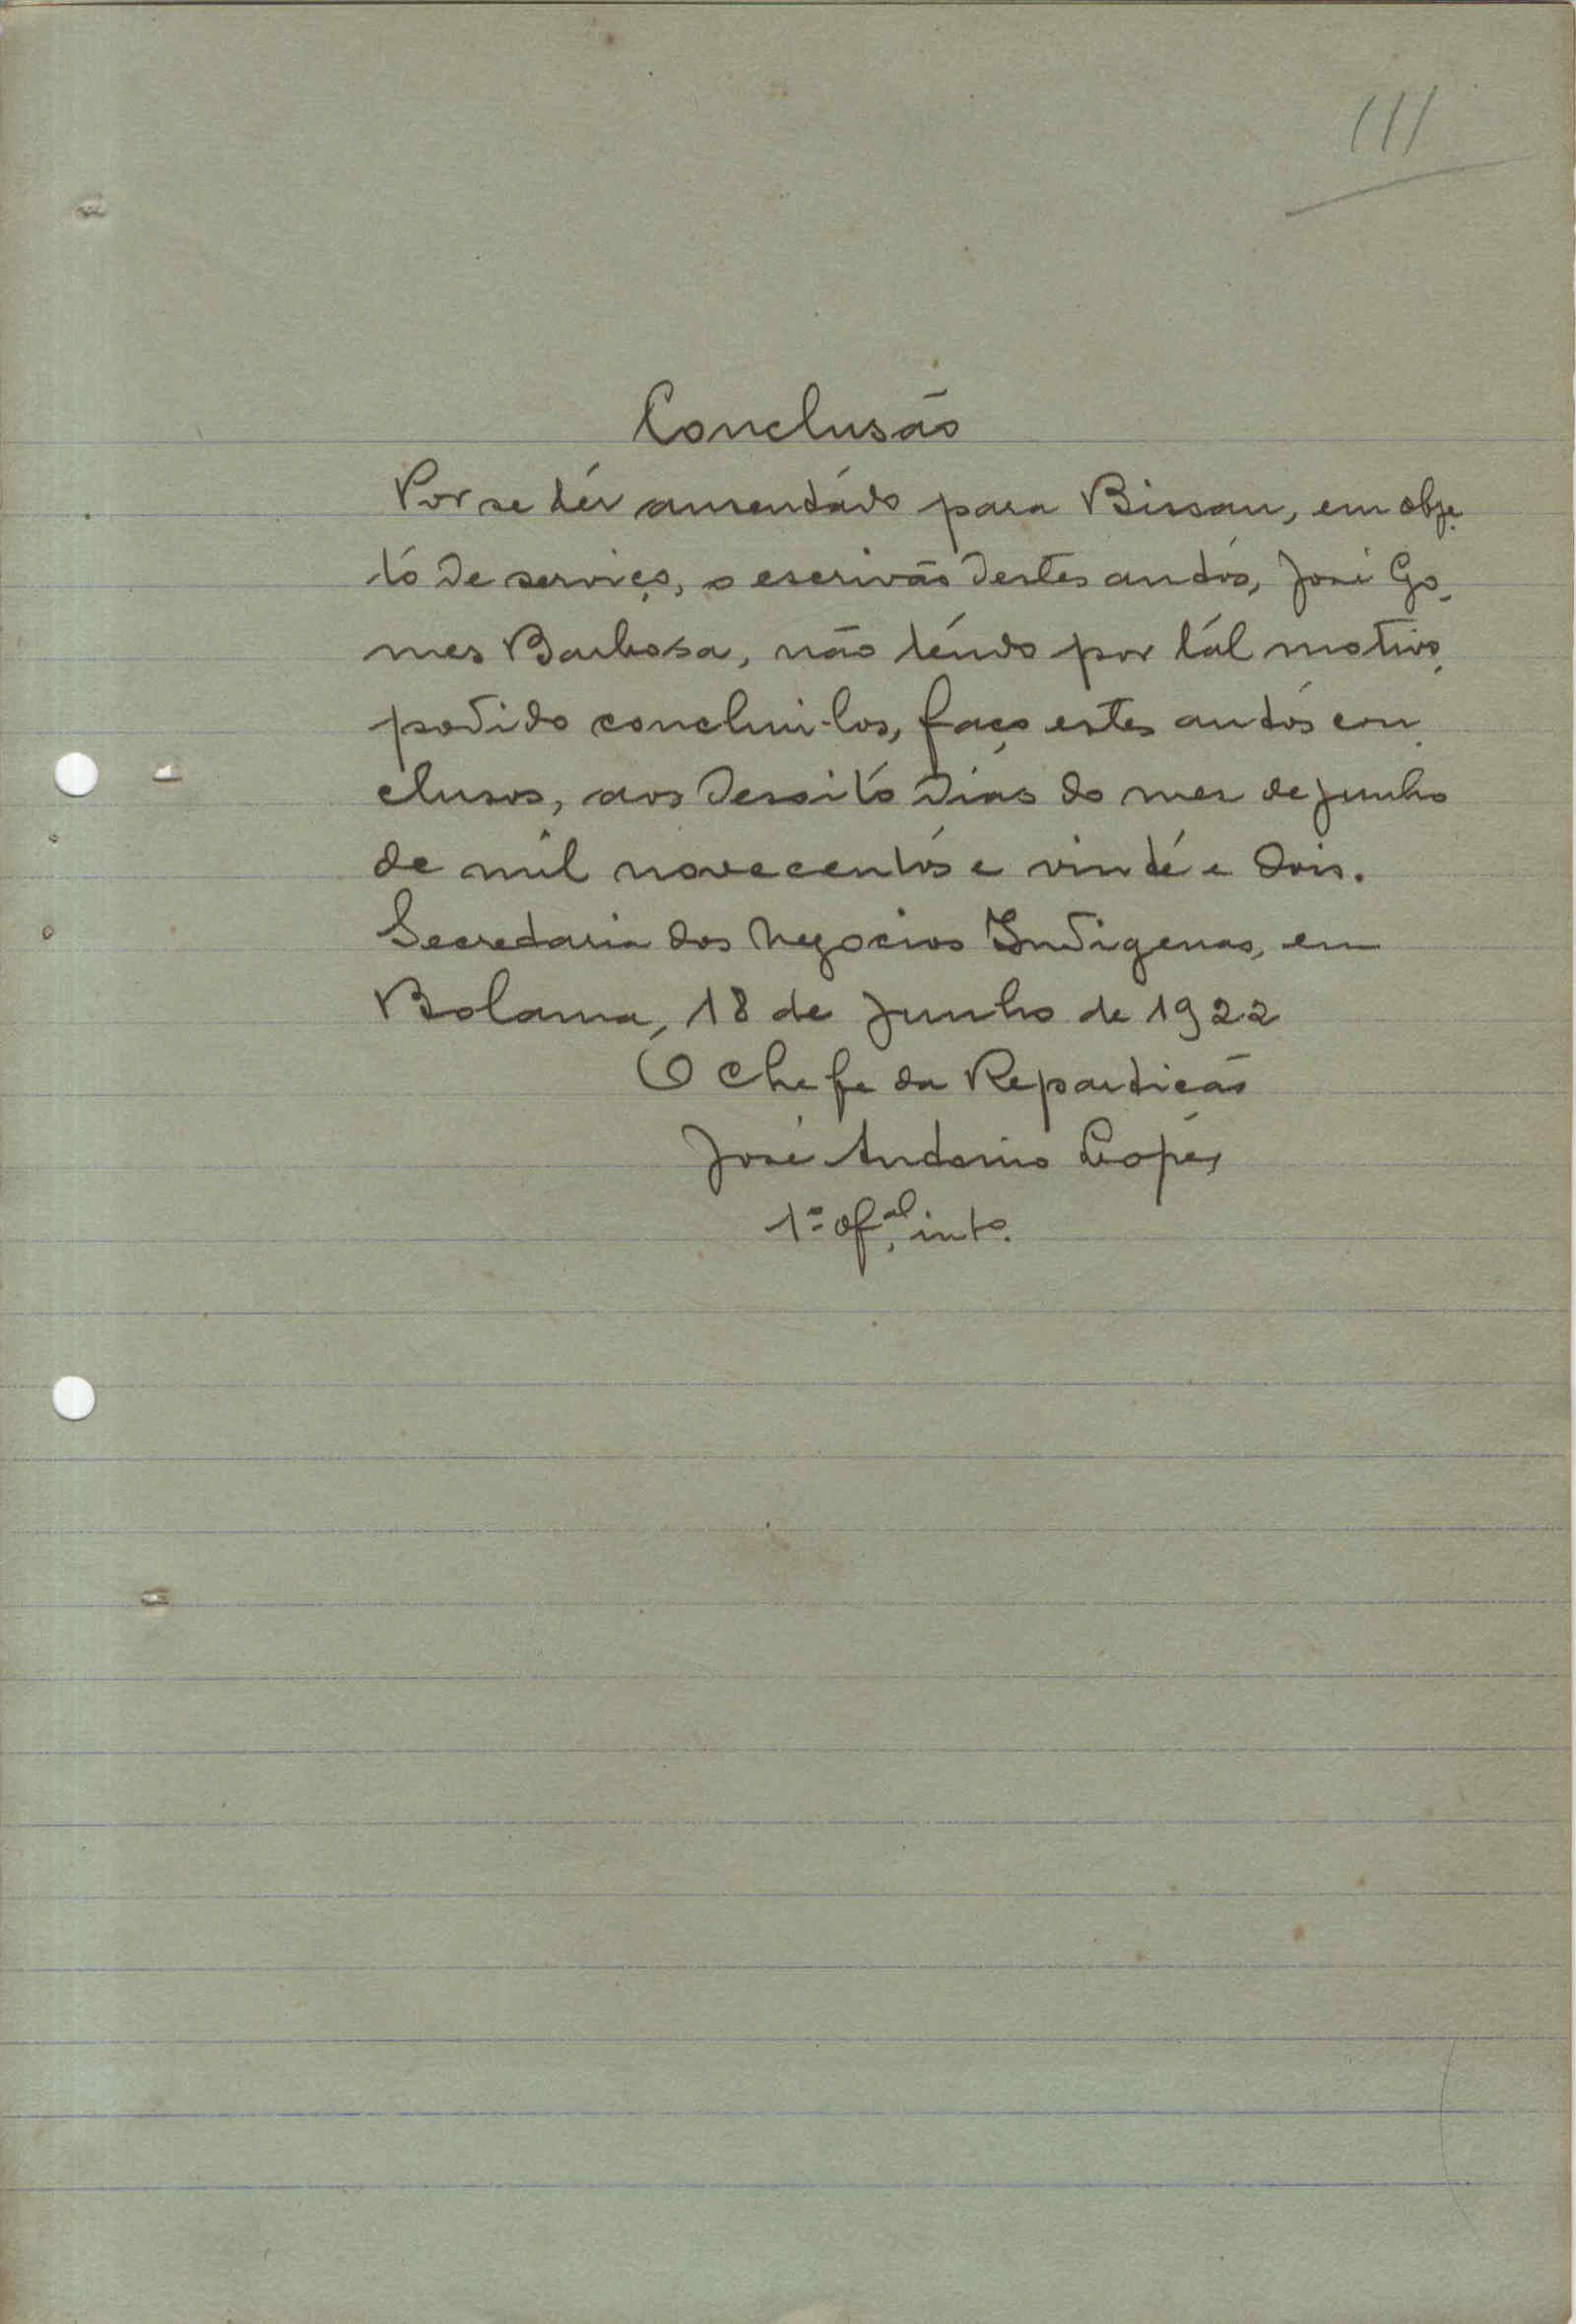 111
Conclusão
Por se ter ausentado para Bissau, em obje-
to de serviço, o escrivão destes autos, José Go-
mes Barbosa, não tendo por tal motivo
podido conclui-los, faço estes autos con-
clusos, aos desoito dias do mez de junho
de mil novecentos e vinte e dois.
Secretaria dos Negocios Indigenas, em
Bolama, 18 de Junho de 1922
O Chefe da Repartição
José Antonio Lopes
1º of.al, intº.